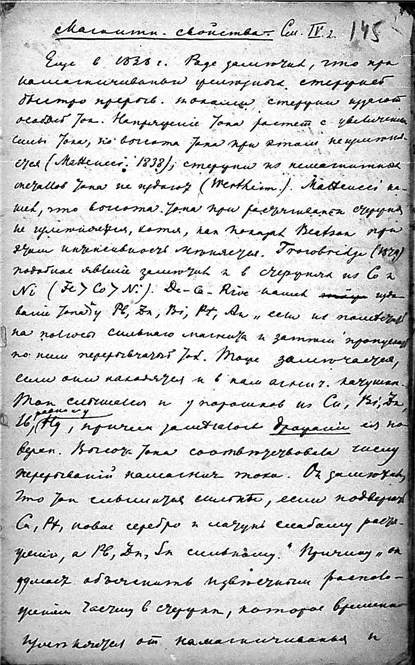 Магнитн. свойства. См. IV. 2. 145
Еще в 1838 г. Page замечал, что при
намагничивании железных стержней
быстро прерыв. токами, стержни издают
особый тон. Напряжение тона растет с увеличением
силы тока, но высота тона при этом не изменя-
ется (Matteucci, 1838), стержни из немагнитных
металлов тона не издают (Wertheim). Matteucci на-
шел, что высота тона при растягивании стержня
не изменяется, хотя, как показал Beatson при
этом интенсивность меняется. Trowbridge (1879)
подобное явление замечал и в стержнях из Co и
Ni (Fe > Co > Ni). De-la-Rive нашел изда-
вание тона у Pb, Zn, Bi, Pt, „если их поместить
на полюсы сильного магнита и затем пропускать
по ним прерывчатый ток. Тоже замечается,
если они находятся и в намагнич. катушке.
Тон слышался и у порошков из Cu, Bi, Zn,
Hg, причем замечалось дрожание его по-
верхн. Высота тона соответствовала числу
прерываний намагнич. тока. Он замечал,
что тон слышится сильнее, если подвергнуть
Cu, Pt, новое серебро и латунь слабому растя-
жению, а Pb, Zn, Sn сильному." Причину он
думает объяснить известным располо-
жением частиц в стержне, которое временно
изменяется от намагничиванья и